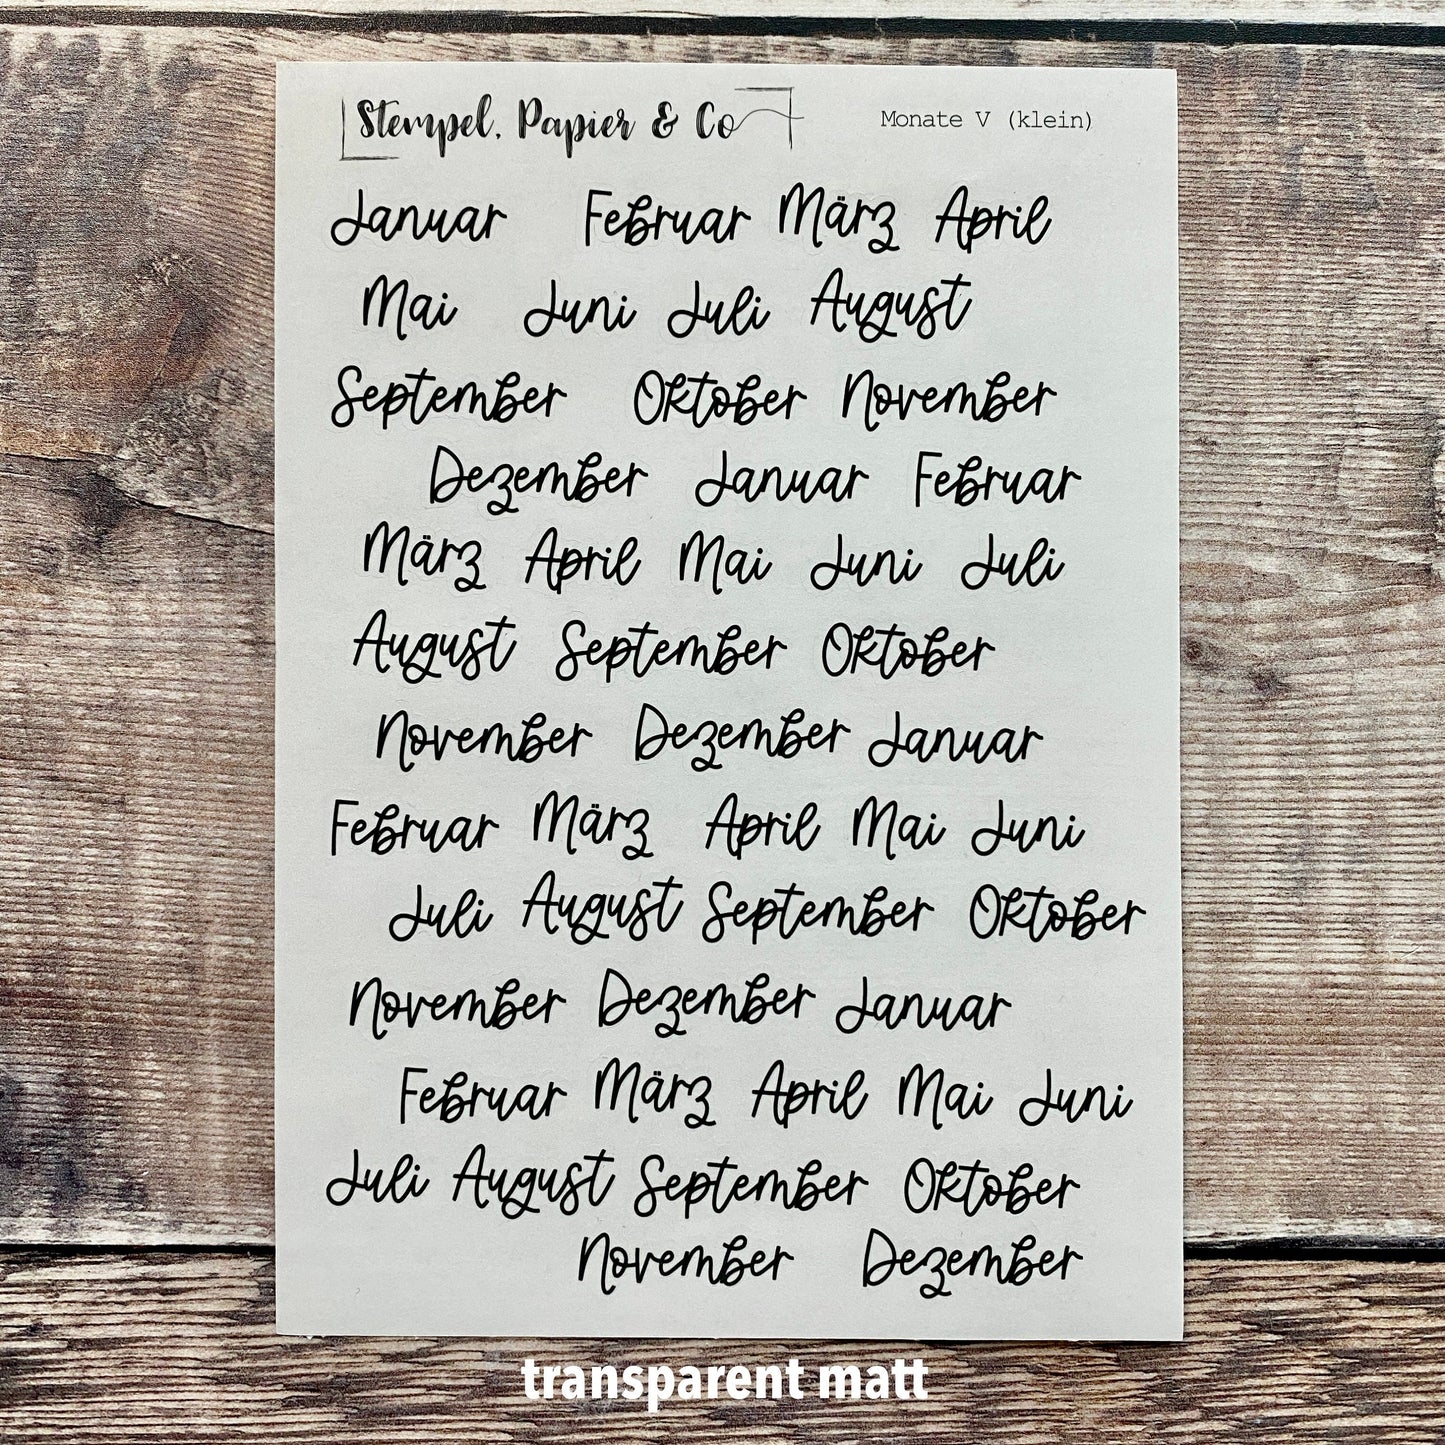 Stempel, Papier & Co Monate V (klein)
Januar Februar März April
Mai Juni Juli August
September Oktober November
Dezember Januar Februar
März April Mai Juni Juli
August September Oktober
November Dezember Januar
Februar März April Mai Juni
Juli August September Oktober
November Dezember Januar
Februar März April Mai Juni
Juli August September Oktober
November Dezember
transparent matt